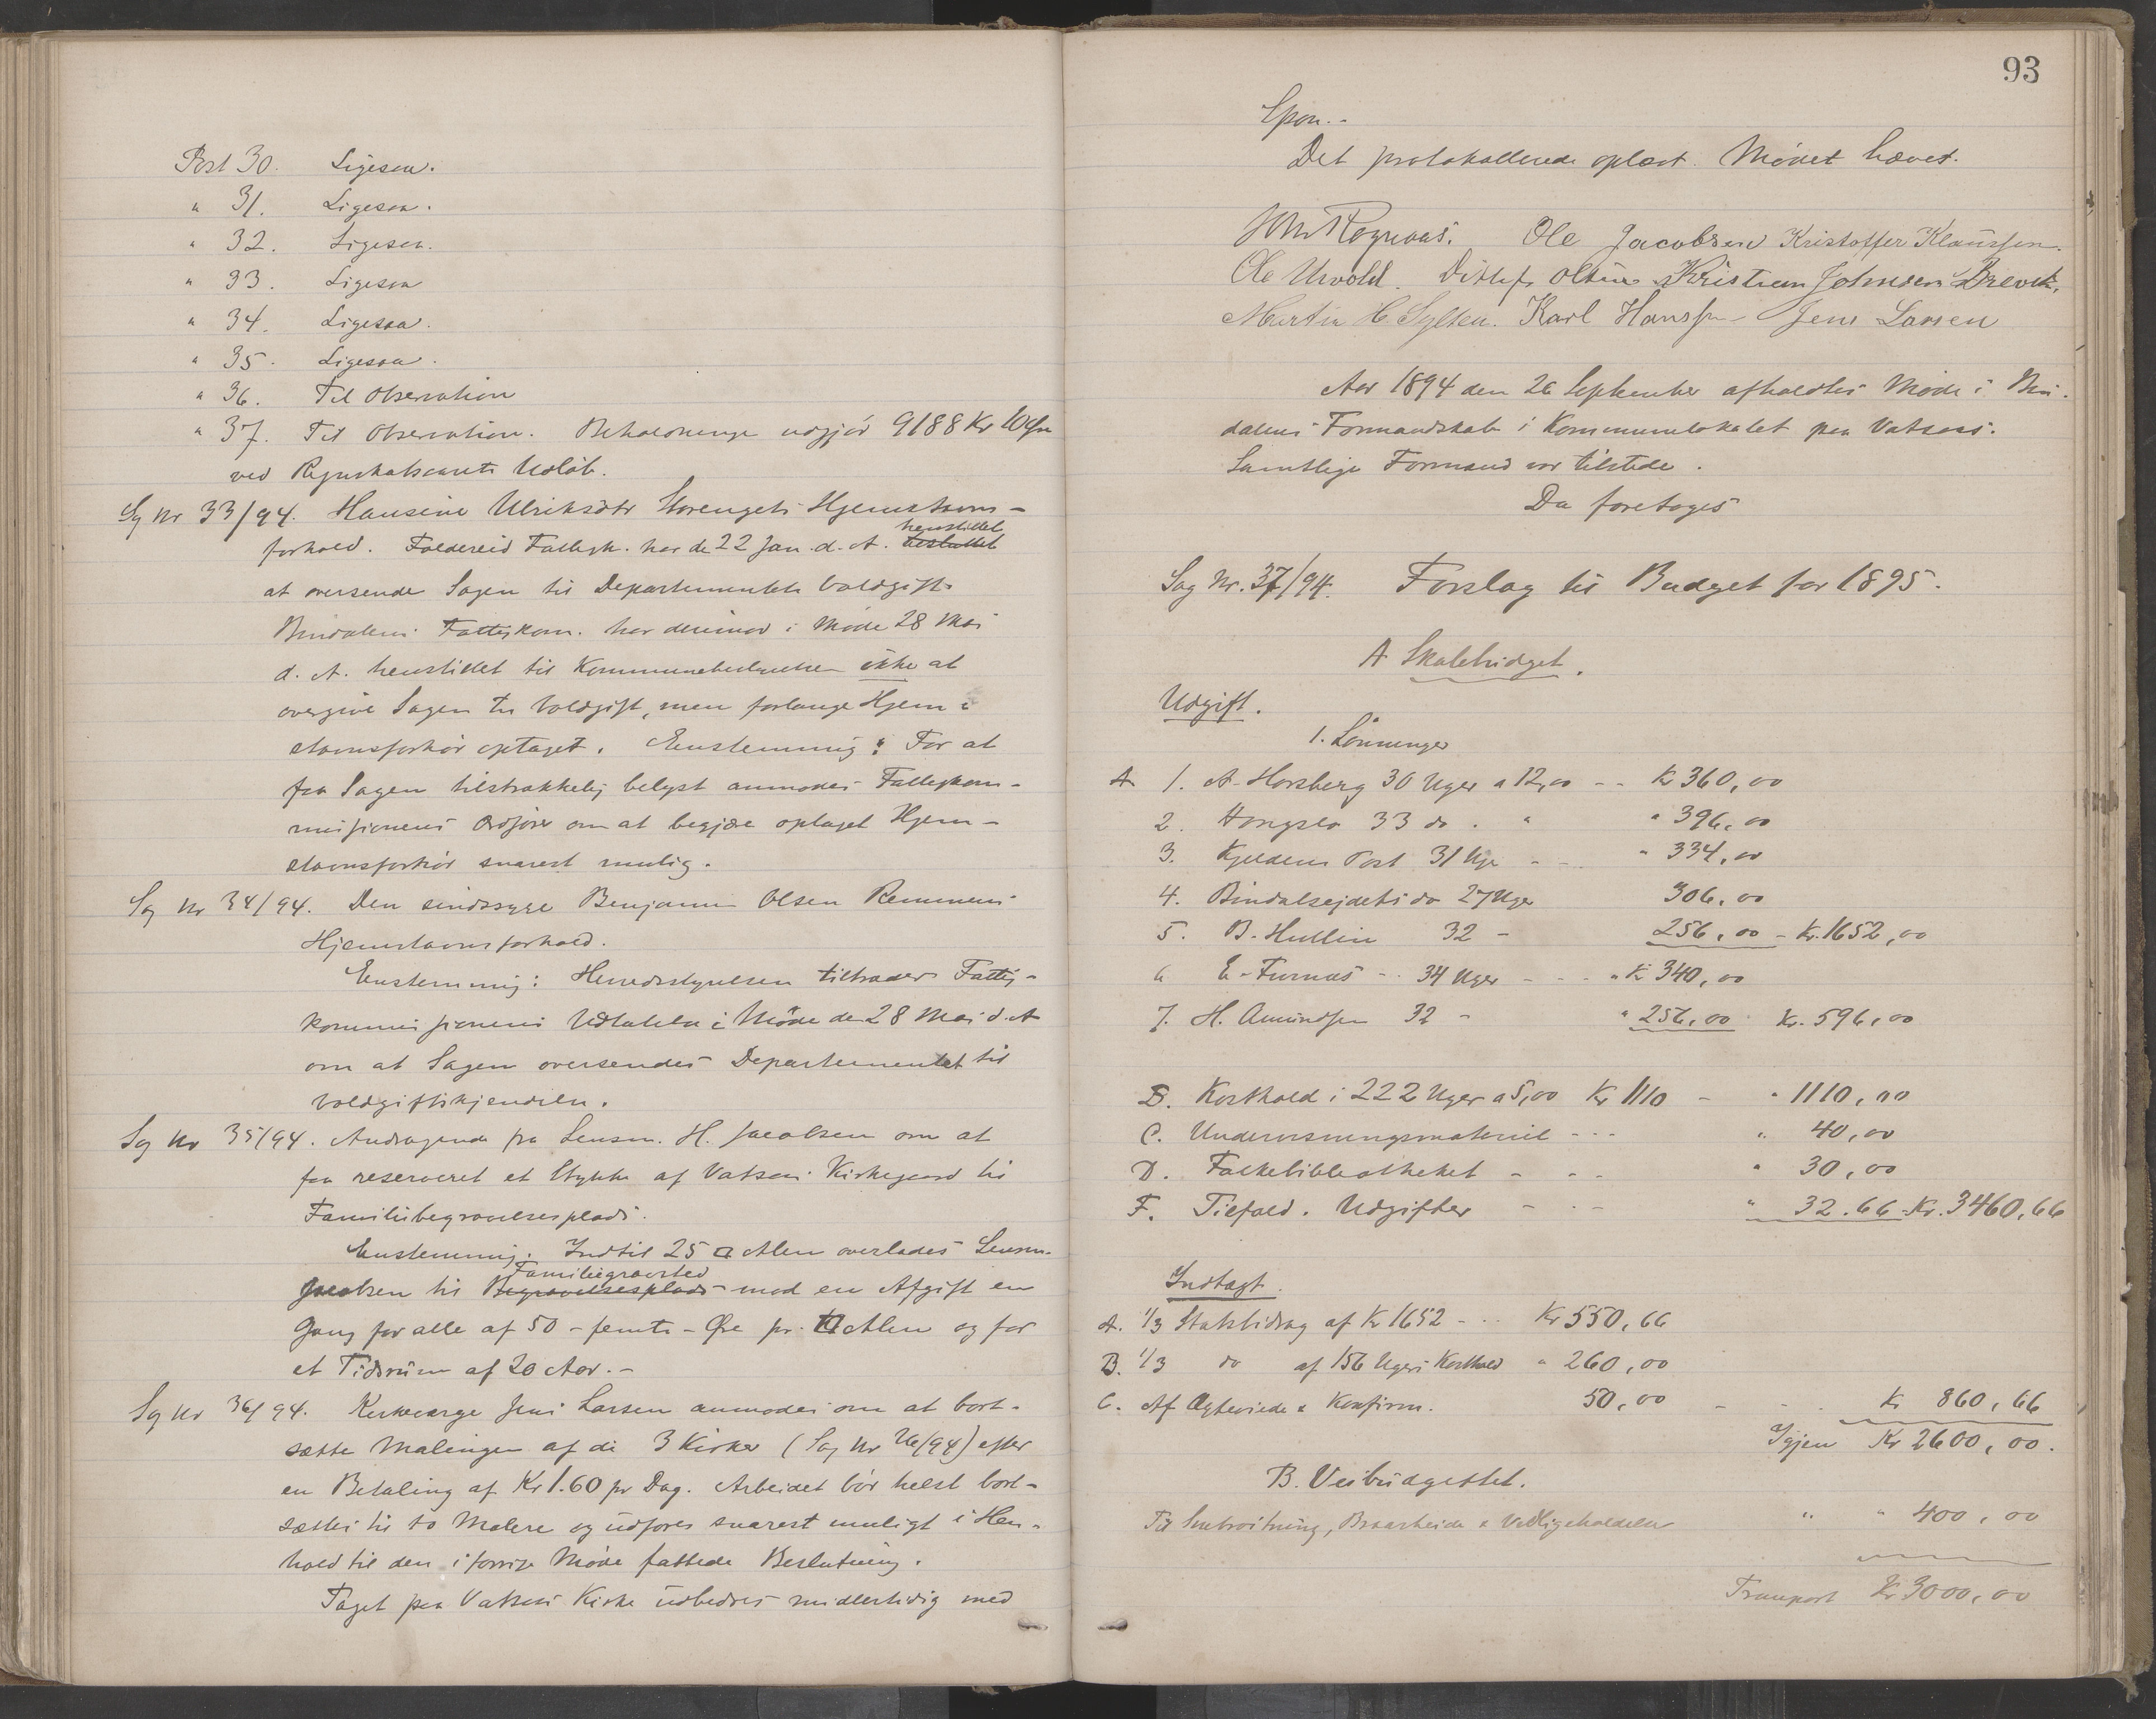 Post 30. Ligesaa.
" 31. Ligesaa.
" 32. Ligesaa.
" 33. Ligesaa
" 34. Ligesaa.
" 35. Ligesaa.
" 36. Til Observation
" 37. Til Observation. Beholdninge udgjør 9188 Kr 10 Øre
ved Regnskabsaarets Udløb.
Sag Nr 33/94. Hansine Ulriksdtr Horengets Hjemstavns-
forhold. Foldereid Fattigk. har de 22 Jan. d. A. besluttet henstillet
at oversende Sagen til Departementets Voldgift.
Bindalens Fattigkom. har derimod i Møde 28 Mai
d. A. henstillet til Kommunebestyrelsen ikke at
overgive Sagen til Voldgift, men forlange Hjem-
stavnsforhør optaget. Enstemmig: For at
faa Sagen tilstrækkelig belyst anmodes Fattigkom-
missionens Ordfører om at begjære optaget Hjem-
stavnsforhør snarest mulig.
Sag Nr 34/94. Den sindssyge Benjamin Olsen Remmens
Hjemstavnsforhold.
Enstemmig: Herredsstyrelsen tiltræder Fattig-
kommissionens Udtalelse i Møde de 28 Mai d. A
om at Sagen oversendes Departementet til
Voldgiftskjendelse.
Sag Nr 35/94. Andragende fra Lensm. H. Jacobsen om at
faa reserveret et Stykke af Vatsaas Kirkegaard til
Familiebegravelsesplads.
Enstemmig: Indtil 25 □ Alen overlades Lensm.
Jacobsen til Begravelsesplads Familiegravsted mod en Afgift en
Gang for alle af 50 - femti - Øre pr. □ Alen og for
et Tidsrum af 20 Aar. -
Sag Nr 36/94. Kirkeværge Jens Larsen anmodes om at bort-
sætte Malingen af de 3 Kirker (Sag Nr 26/94) efter
en Betaling af Kr 1.60 pr Dag. Arbeidet bør helst bort-
sættes til to Malere og udføres snarest muligt i Hen-
hold til den i forrige Møde fattede Beslutning.
Taget paa Vatsaas Kirke udbedres midlertidig med
93
Spon. -
Det protokollerede oplæst. Mødet hævet.
Ole Jacobsen Kristoffer Klaussen.
Ole Urvold. Ditlef Olsen Kristian Johnsen Brevik.
Martin H. Sylten. Karl Hanssen Jens Larsen
Aar 1894 den 26 September afholdtes Møde i Bin-
dalens Formandskab i Kommunelokalet paa Vatsaas.
Samtlige Formænd var tilstede.
Da foretoges
Sag Nr. 37/94. Forslag til Budget for 1895.
A Skolebudget.
Udgift.
1. Lønninger
A 1. A. Horsberg 30 Uger a 12,00 - - Kr 360,00
2. Hongseth 33 do. " " 396,00
3. Kjeldens Post 31 Uge - - " 334,00
4. Bindalsejdets do 27 Uger 306,00
5. B. Hullin 32 - 256,00 - Kr. 1652,00
6 E. Furnæs - - 34 Uger - - - " Kr 340,00
7. H. Amundsen 32 - " 256,00 Kr. 596,00
B. Kosthold i 222 Uger a 5,00 Kr 1110 - " 1110,00
C. Undervisningsmateriel - - - " 40,00
D. Folkebibliotheket - - - " 30,00
F. Tilfæld. Udgifter - - - " 32.66 - Kr. 3460,66
Indtægt.
A. 1/3 Statsbidrag af Kr 1652 - - - Kr 550,66
B. 1/3 do af 156 Ugers Kosthold " 260,00
C. Af Ægteviede & Konfirm. 50,00 - - - Kr 860,66
Igjen Kr 2600,00.
B. Veibudgettet.
Til Snebrøitning, Broarbeide & Vedligeholdelse " " 400,00
Transport Kr 3000,00